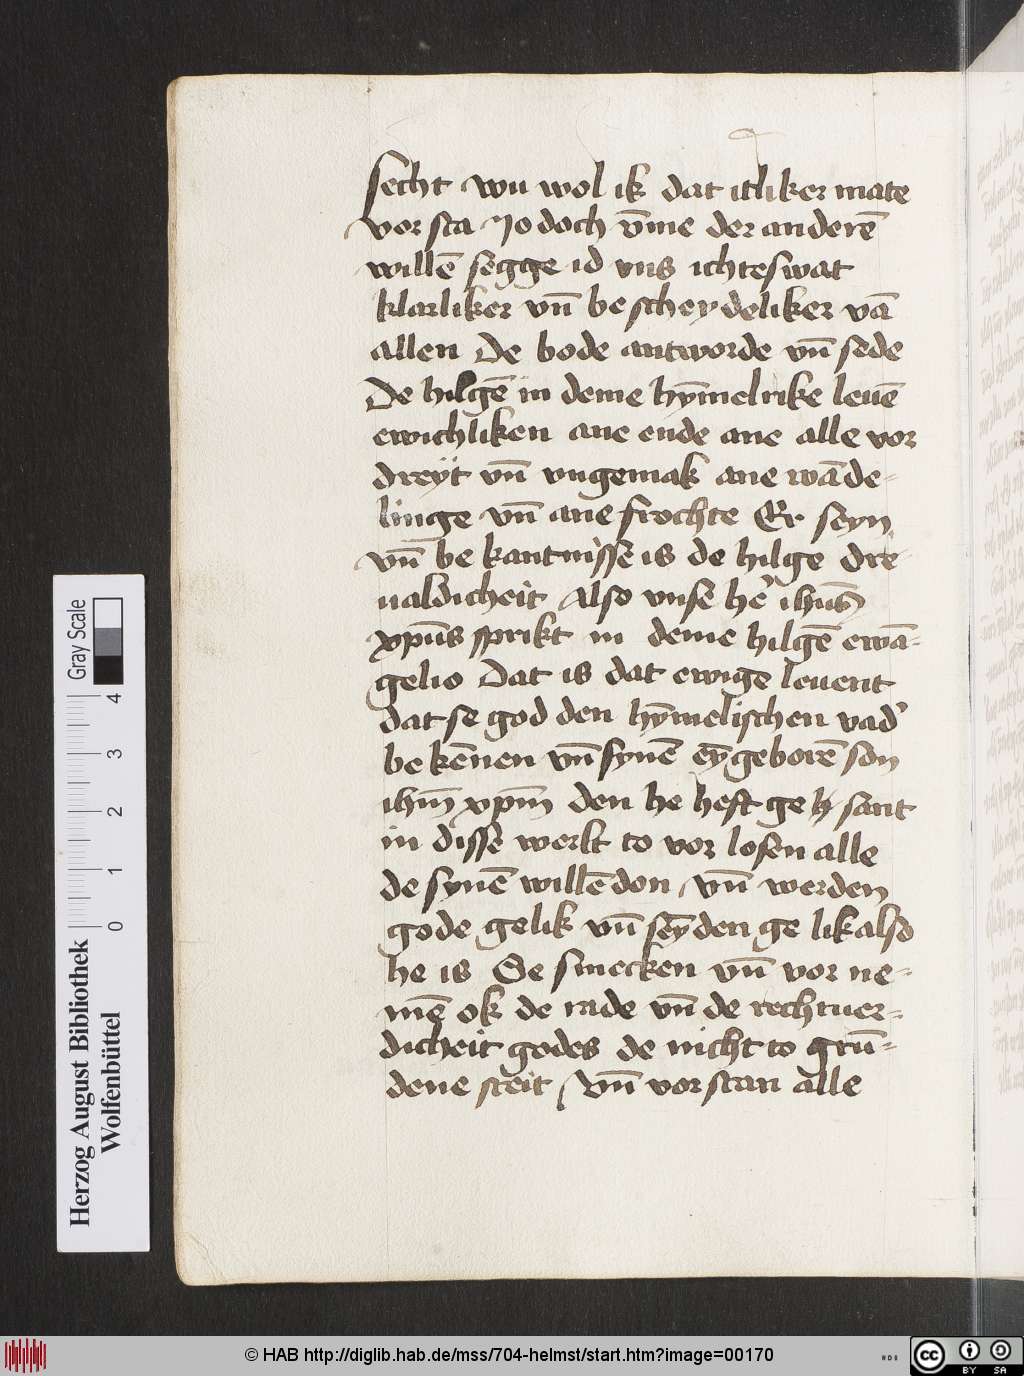 secht wu wol ik dat itliker mate
vor sta Jo doch v̄me der anderē
willē segge id vns ichteswat
klarliker vn̄ be scheydeliker vā
allen De bode antworde vn̄ sede
De hilgē in deme hȳmelrike leuē
ewichliken ane ende ane alle vor
dreyt vn̄ vngemak ane wāde-
linge vn̄ ane frochte Er seyn
vn̄ be kantnisse is de hilge dre-
ualdicheit Also vnse hē ihūs
xpūs sprikt in deme hilgē ewā-
gelio Dat is dat ewige leuent
dat se god den hȳmelischen vad'
be kēnen vn̄ synē eȳgeborē son
ihm̄ xpm̄ den he heft ge h sant
in disse werlt to vor losen alle
de synē willē don vn̄ werden
gode gelik vn̄ sēyden ge lik also
he is Se smecken vn̄ vor ne-
mē ok de rade vn̄ de rechtuer-
dicheit godes de nicht to grū-
dene steit vn̄ vor stan alle
Herzog August Bibliothek
Wolfenbüttel
0 1 2 3 4
Gray Scale
© HAB http://diglib.hab.de/mss/704-helmst/start.htm?image=00170
cc BY SA